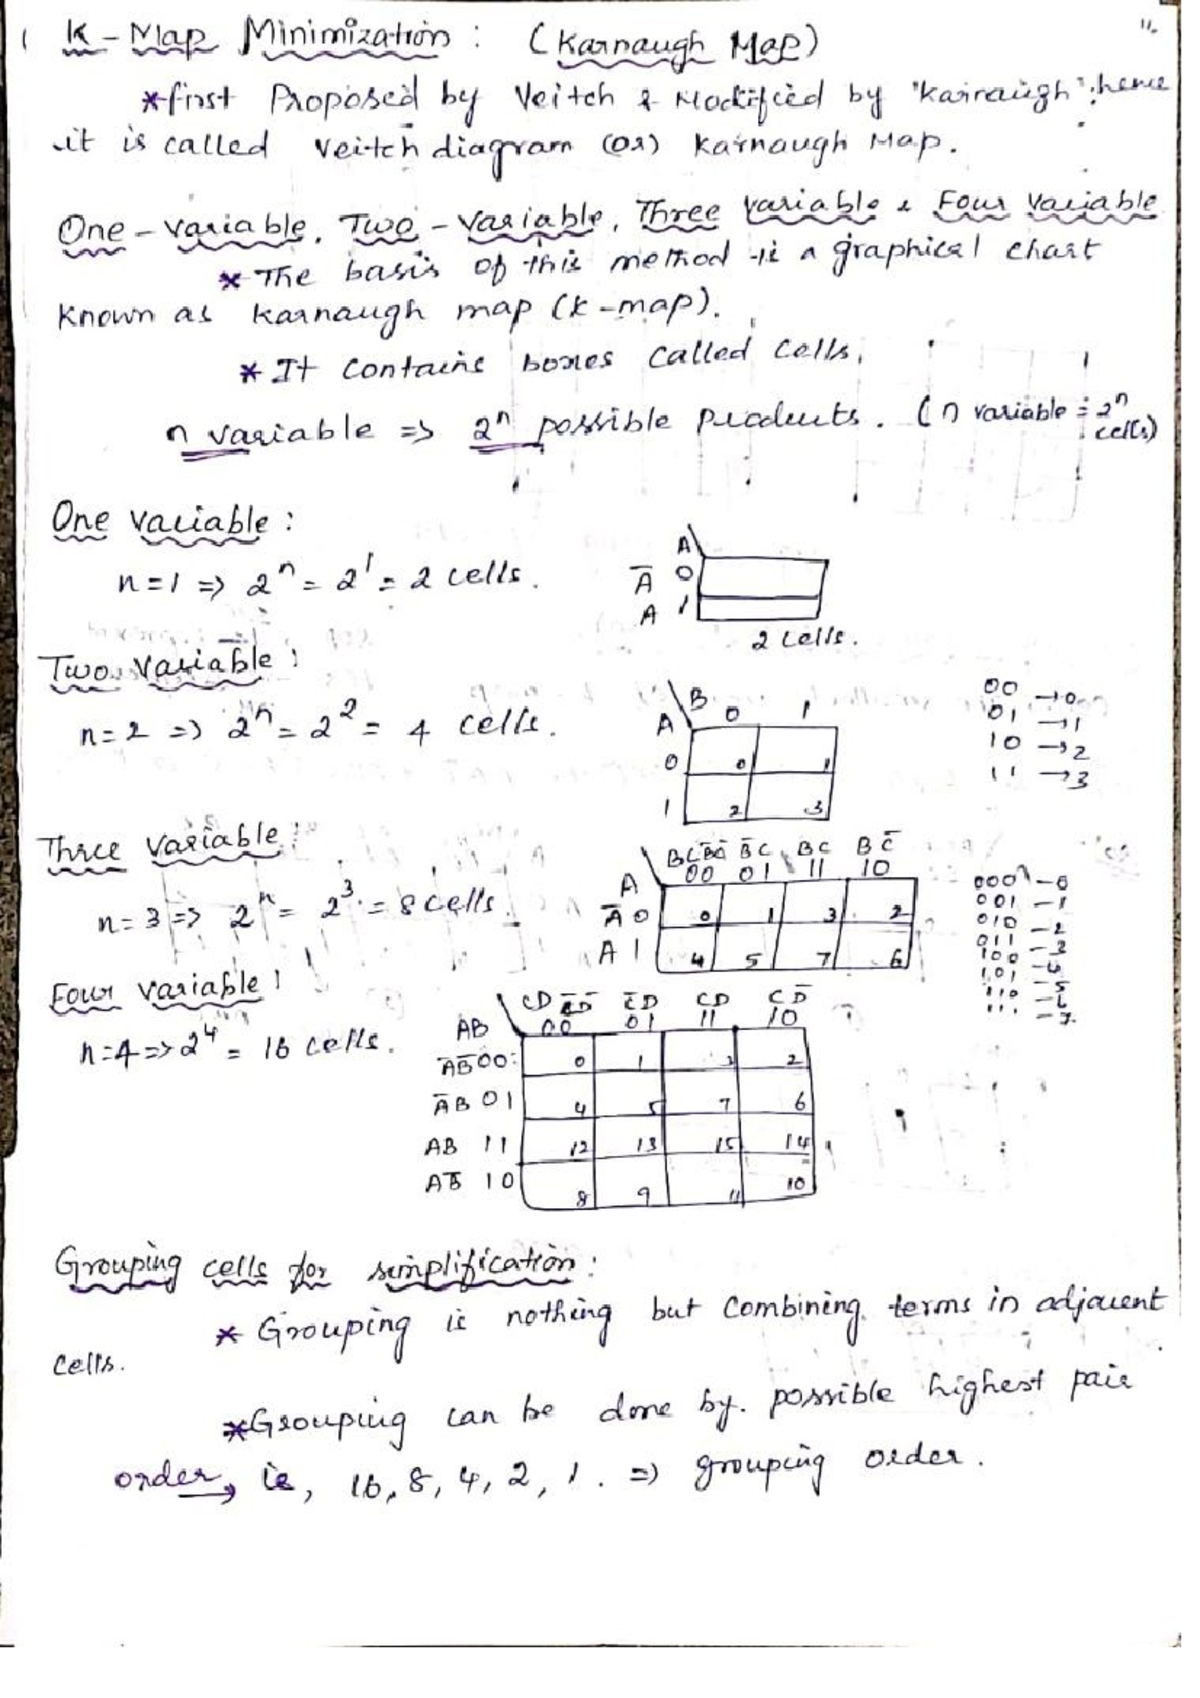 11.
K - Map Minimization : (Karnaugh Map)
* first Proposed by Veitch & Modified by "Karnaugh"; hence
it is called Veitch diagram (or) Karnaugh Map.
One - variable, Two - variable, Three variable & Four variable
* The basis of this method is a graphical chart
known as karnaugh map (k-map).
* It contains boxes called cells.
n variable => 2ⁿ possible products. (n variable = 2ⁿ
cells)
One variable :
A
n=1 => 2ⁿ = 2¹ = 2 cells.
A̅ 0
A 1
2 cells.
Two variable :
n=2 => 2ⁿ = 2² = 4 cells.
B 0 1
A
0 0 1
1 2 3
00 → 0
01 → 1
10 → 2
11 → 3
Three variable :
n=3 => 2ⁿ = 2³ = 8 cells.
BC B̅C̅ B̅C BC BC̅
A 00 01 11 10
A̅ 0 0 1 3 2
A 1 4 5 7 6
000 - 0
001 - 1
010 - 2
011 - 3
100 - 4
101 - 5
110 - 6
111 - 7
Four variable :
n=4 => 2⁴ = 16 cells.
CD C̅D̅ C̅D CD CD̅
AB 00 01 11 10
A̅B̅ 00 0 1 3 2
A̅B 01 4 5 7 6
AB 11 12 13 15 14
AB̅ 10 8 9 11 10
Grouping cells for simplification :
* Grouping is nothing but combining terms in adjacent
cells.
* Grouping can be done by possible highest pair
order, ie, 16, 8, 4, 2, 1. => grouping order.